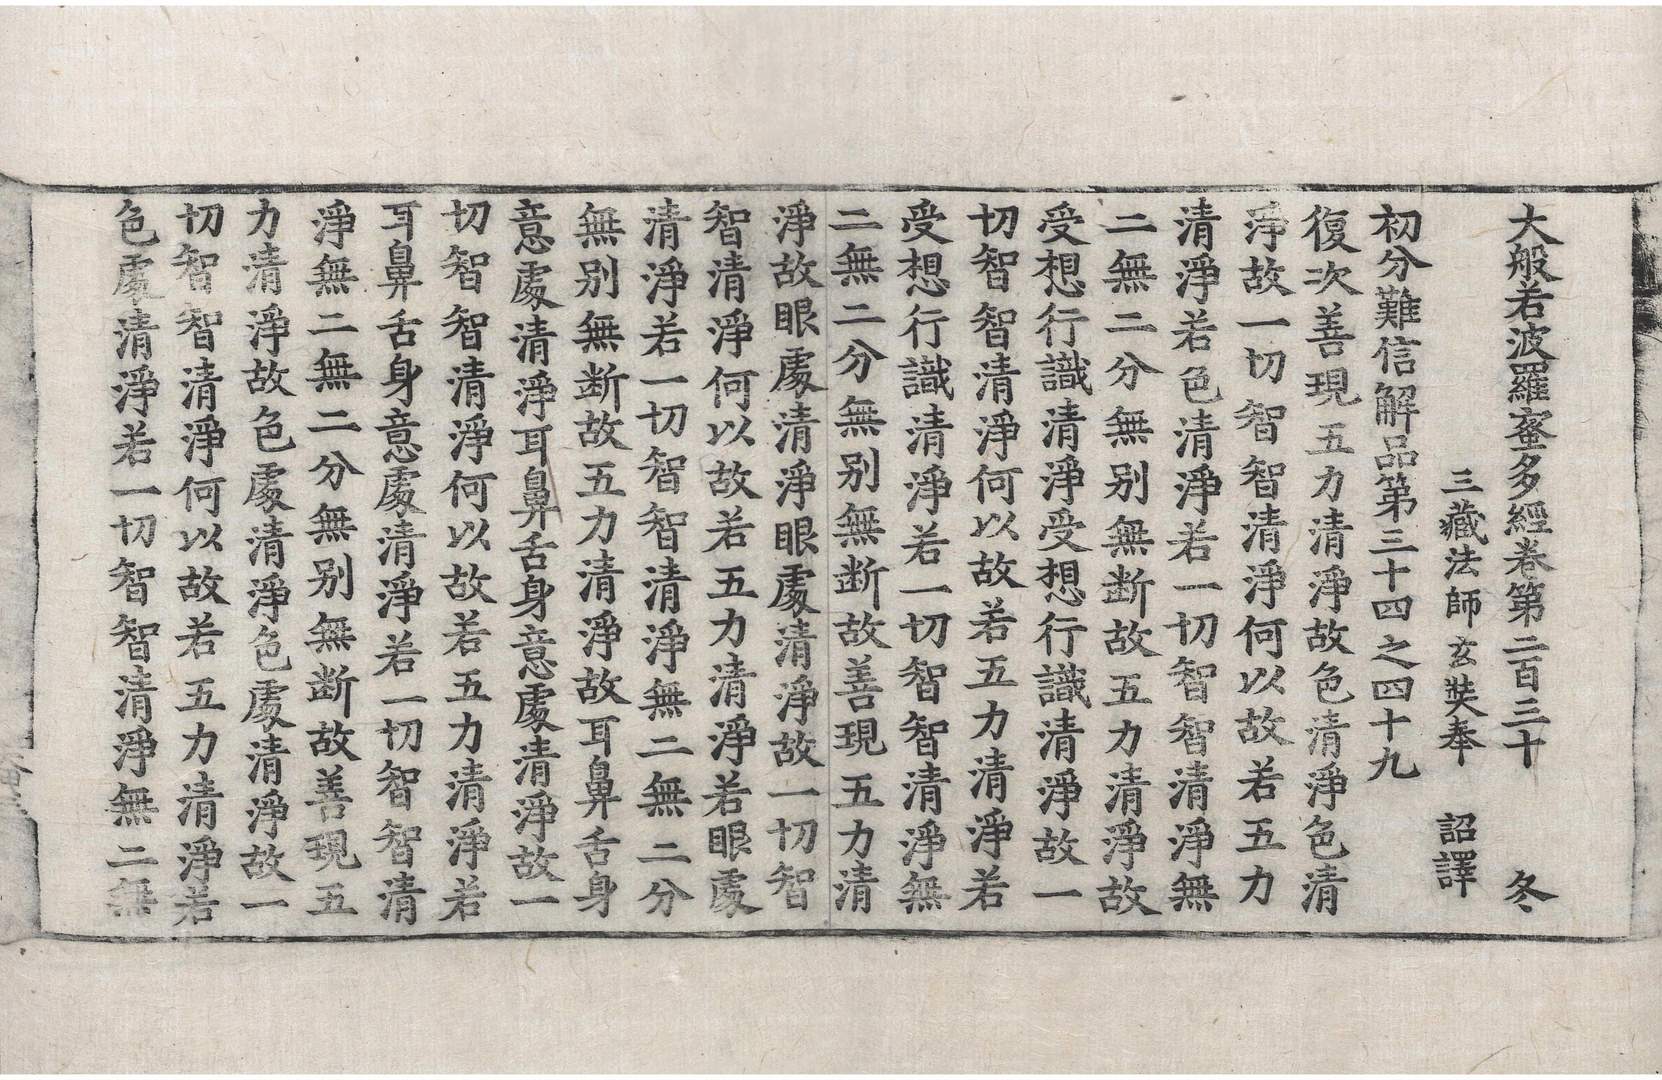 大般若波羅蜜多經卷第二百三十 冬
三藏法師玄奘奉 詔譯
初分難信解品第三十四之四十九
復次善現五力清淨故色清淨色清
淨故一切智智清淨何以故若五力
清淨若色清淨若一切智智清淨無
二無二分無別無断故五力清淨故
受想行識清淨受想行識清淨故一
切智智清淨何以故若五力清淨若
受想行識清淨若一切智智清淨無
二無二分無别無断故善現五力清
淨故眼處清淨眼處清淨故一切智
智清淨何以故若五力清淨若眼處
清淨若一切智智清淨無二無二分
無别無断故五力清淨故耳鼻舌身
意處清淨耳鼻舌身意處清淨故一
切智智清淨何以故若五力清淨若
耳鼻舌身意處清淨若一切智智清
淨無二無二分無别無断故善現五
力清淨故色處清淨色處清淨故一
切智智清淨何以故若五力清淨若
色處清淨若一切智智清淨無二無